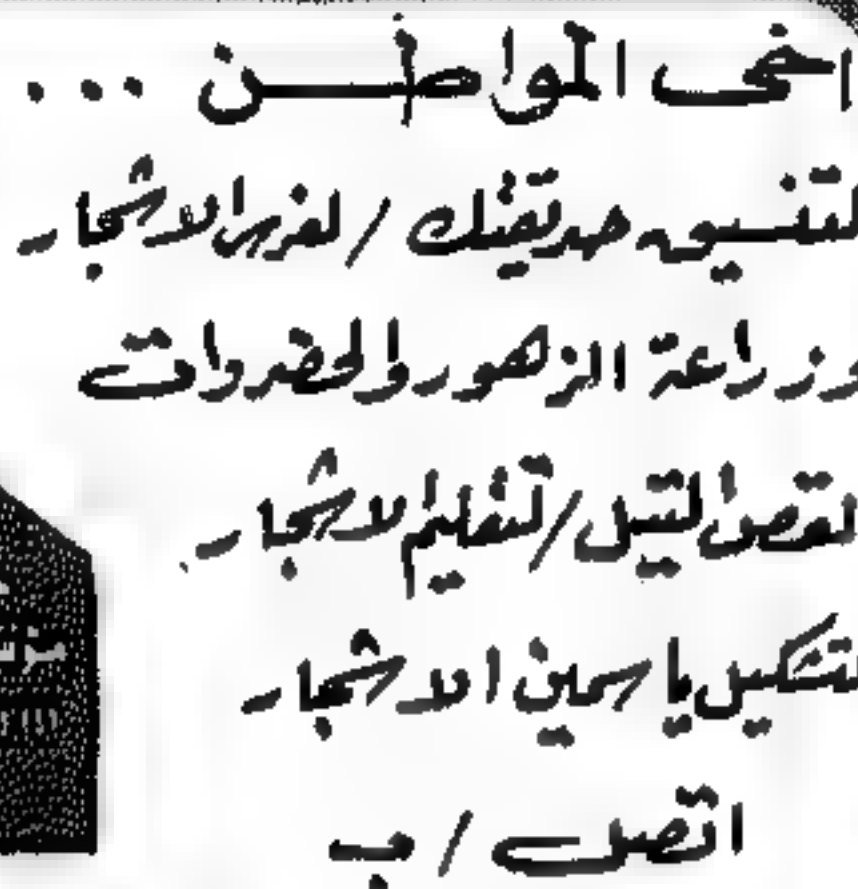 اخى المواطن ...
لتنسيق حديقتك / لغرس الاشجار
وزراعة الزهور والخضروات
لقص الثيل / لتقليم الاشجار
لتشكيل ياسمين الاشجار
اتصل / ب